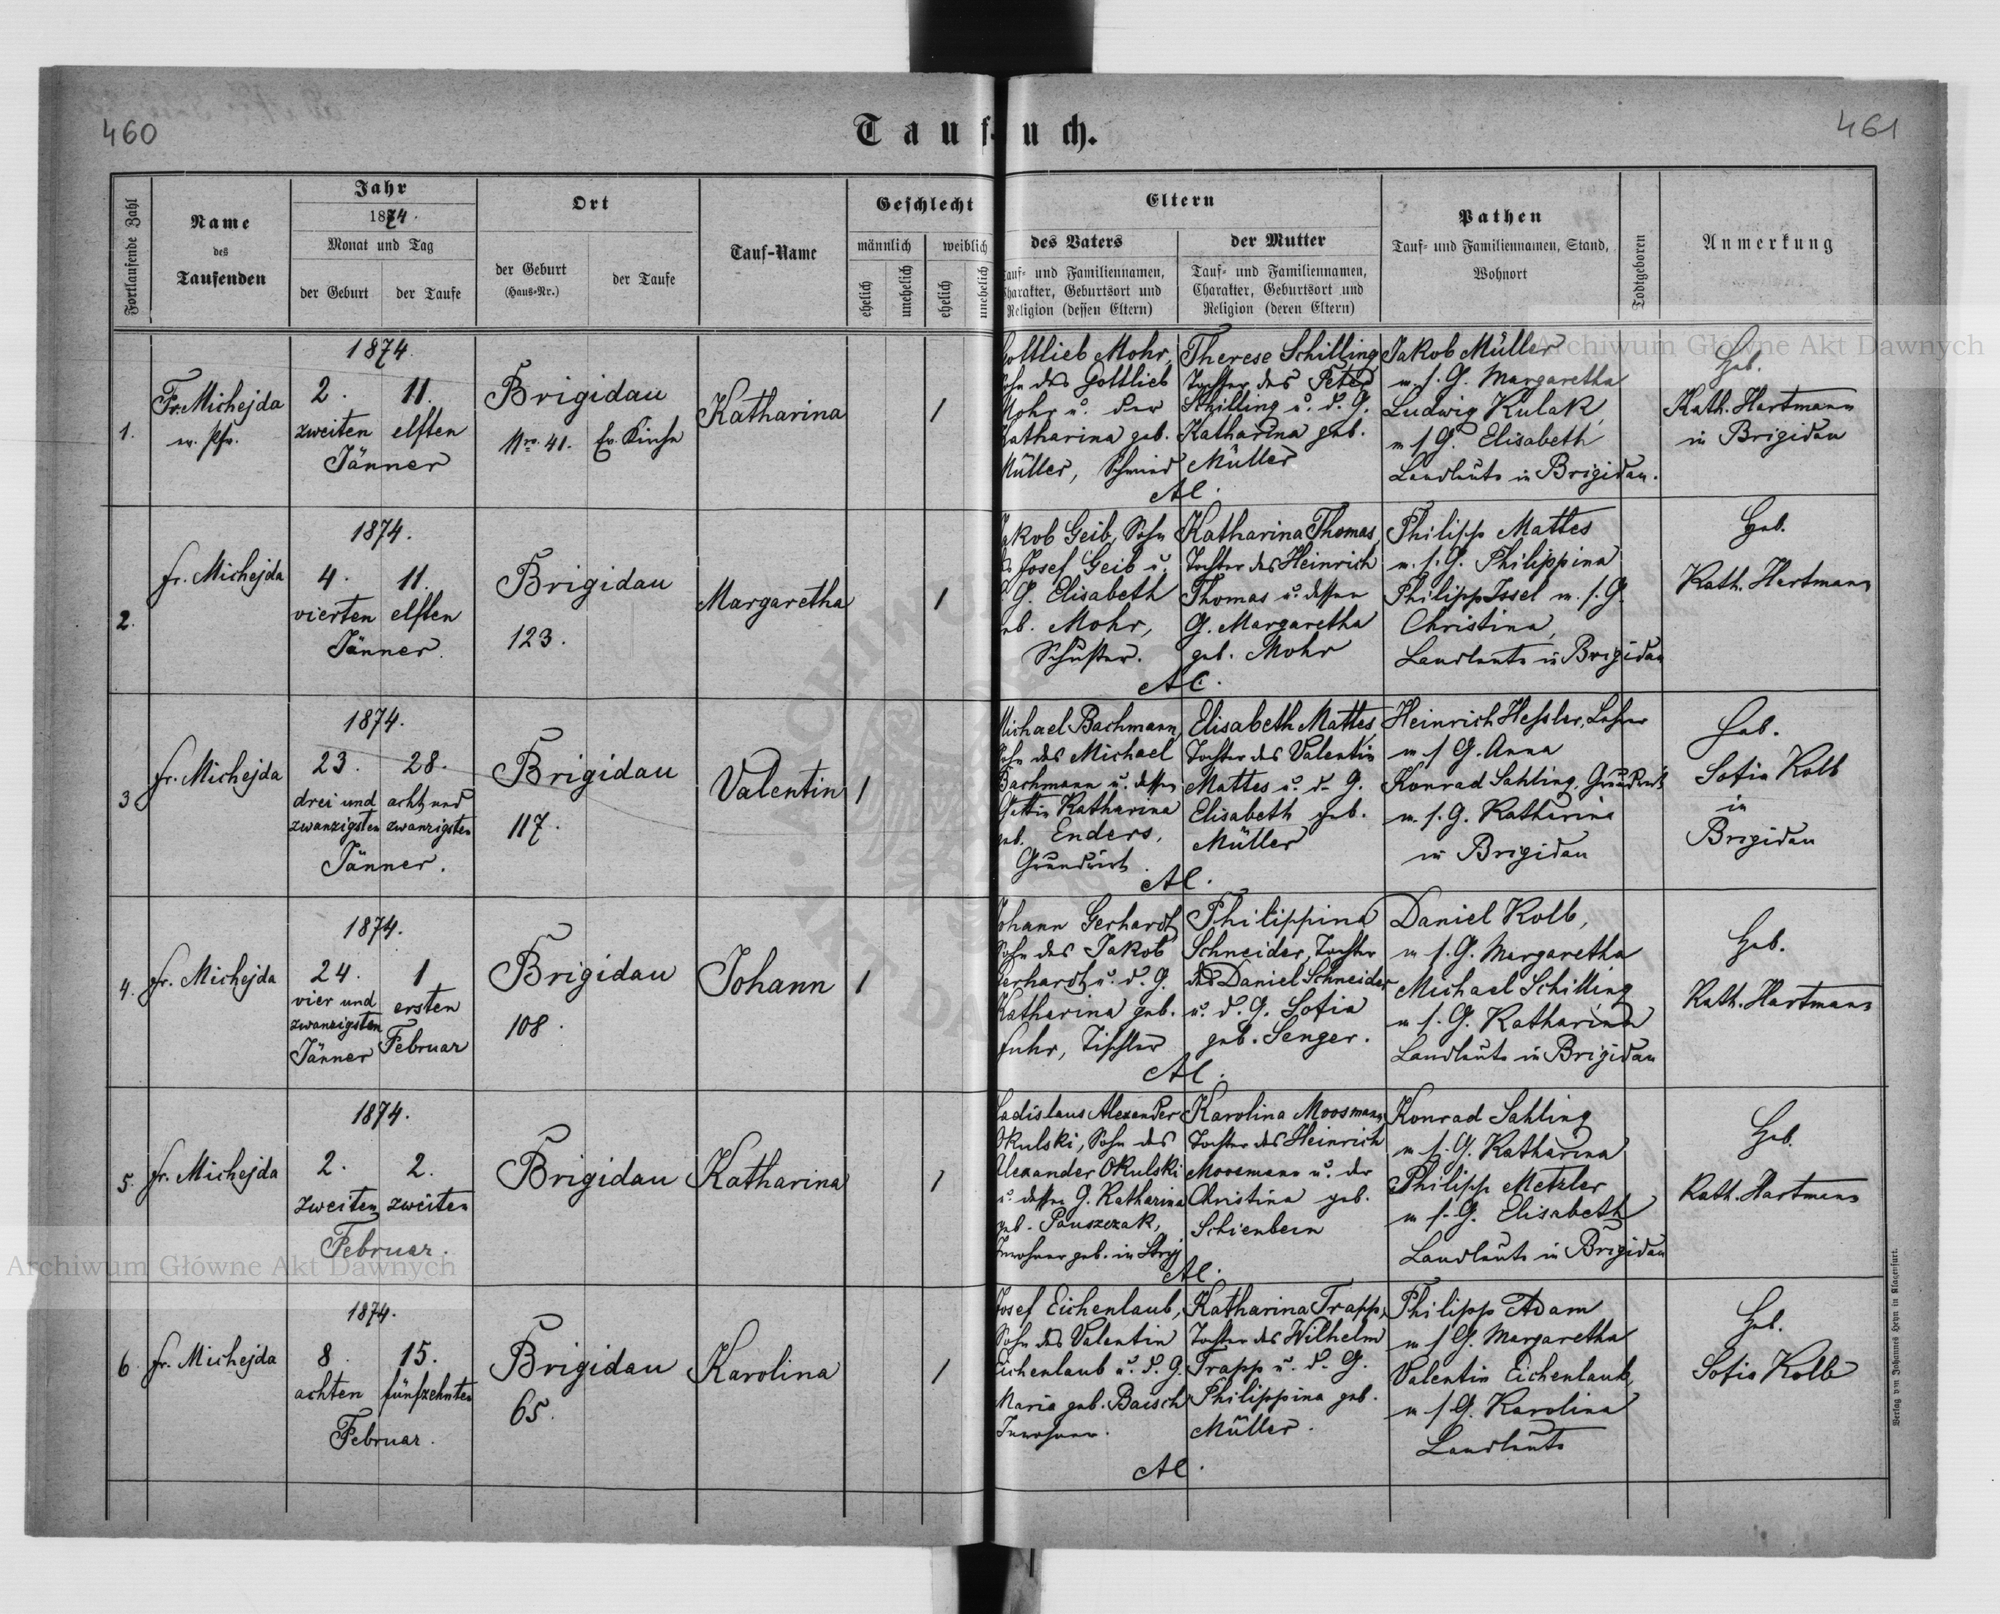 460
461
Tauf-
uch.
Fortlaufende Zahl
Name
des
Taufenden
Jahr
1874.
Monat und Tag
der Geburt
der Taufe
Ort
der Geburt
(Haus-Nr.)
der Taufe
Tauf-Name
Geschlecht
männlich
weiblich
ehelich
unehelich
ehelich
unehelich
Eltern
des Vaters
auf- und Familiennamen,
Charakter, Geburtsort und
Religion (dessen Eltern)
der Mutter
Tauf- und Familiennamen,
Charakter, Geburtsort und
Religion (deren Eltern)
Pathen
Tauf- und Familiennamen, Stand,
Wohnort
Todtgeboren
Anmerkung
1.
Fr. Michejda
ev. Pfr.
1874.
2. 11.
zweiten elften
Jänner
Brigidau
Nro. 41. Ev. Kirche
Katharina
1
Gottlieb Mohr,
Sohn des Gottlieb
Mohr u. der
Katharina geb.
Müller, Schmied
Therese Schilling,
Tochter des Peter
Schilling u. d. G.
Katharina geb.
Müller
AC.
Jakob Müller
m. s. G. Margaretha
Ludwig Kulak,
m s G. Elisabeth
Landleute in Brigidau.
Heb.
Kath. Hartmann
in Brigidau
2.
Fr. Michejda
1874.
4. 11.
vierten elften
Jänner.
Brigidau
123.
Margaretha
1
Jakob Geib, Sohn
Josef Geib u.
G. Elisabeth
geb. Mohr,
Schuster.
Katharina Thomas,
Tochter des Heinrich
Thomas u. dessen
G. Margaretha
geb. Mohr
AC.
Philipp Mattes
m. s. G. Philippina
Philipp Issel m. s. G.
Christina,
Landleute in Brigidau
Heb.
Kath. Hartmann
3
Fr. Michejda
1874.
23. 28.
drei und acht und
zwanzigsten zwanzigsten
Jänner.
Brigidau
117.
Valentin
1
Michael Bachmann,
Sohn des Michael
Bachmann u. dessen
Gattin Katharina
geb. Enders,
Grundwirt
Elisabeth Mattes,
Tochter des Valentin
Mattes u. d. G.
Elisabeth geb.
Müller
AC.
Heinrich Hessler, Lehrer
m s G. Anna
Konrad Sahling,
m. s. G. Katharina
in Brigidau
Heb.
Sofia Kolb
in
Brigidau
4.
Fr. Michejda
1874.
24. 1
vier und ersten
zwanzigsten Februar
Jänner
Brigidau
108.
Johann
1
Johann Gerhardt,
Sohn des Jakob
Gerhardt u. d. G.
Katharina geb.
Fuhr, Tischler
Philippina
Schneider, Tochter
des Daniel Schneider
u. d. G. Sofia
geb. Senger.
AC.
Daniel Kolb,
m s. G. Margaretha
Michael Schilling
m s. G. Katharina
Landleute in Brigidau
Heb.
Kath. Hartmann
5.
Fr. Michejda
1874.
2. 2.
zweiten zweiten
Februar.
Brigidau
Katharina
1
Ladislaus Alexander
Okulski, Sohn des
Alexander Okulski
u. dessen G. Katharina
geb. Pauszczak,
Inwohner geb. in Stryj
Karolina Moosmann,
Tochter des Heinrich
Moosmann u. der
Christina geb.
Schienbein
AC.
Konrad Sahling
m. s. G. Katharina
Philipp Metzler
m s. G. Elisabeth
Landleute in Brigidau
Heb.
Kath. Hartmann
6.
Fr. Michejda
1874.
8. 15.
achten fünfzehnten
Februar.
Brigidau
65.
Karolina
1
Josef Eichenlaub,
Sohn des Valentin
Eichenlaub u. d. G.
Maria geb. Baisch
Inwohner.
Katharina Trapp,
Tochter des Wilhelm
Trapp u. d. G.
Philippina geb.
Müller.
AC.
Philipp Adam
m s G. Margaretha
Valentin Eichenlaub,
m s G. Karolina
Landleute
Heb.
Sofia Kolb
Verlag von Johannes Heyn in Klagenfurt.
Archiwum Główne Akt Dawnych
Archiwum Główne Akt Dawnych